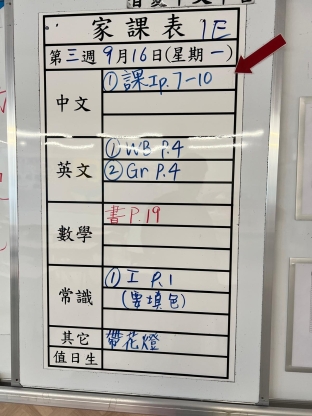 家課表 1E
第三週 9月16日(星期一)
中文 ①課Ip.7-10
英文 ①WB P.4
②Gr P.4
數學 書P.19
常識 ①I P.1
(要填色)
其它 帶花燈
值日生